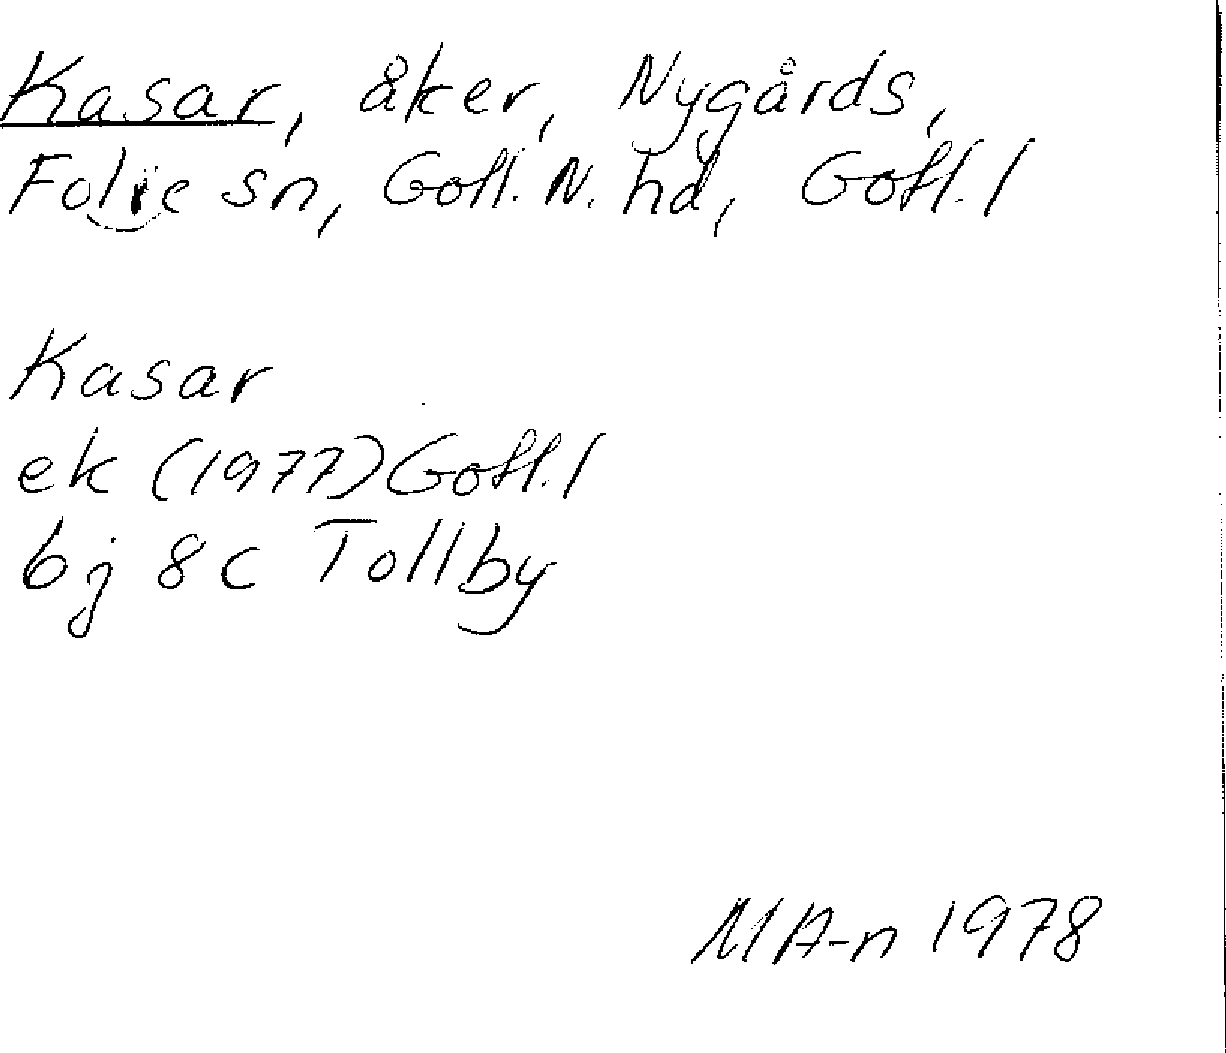 Kasar, åker, Nygårds,
Fole sn, Gotl. N. hd, Gotl. l
Kasar
ek (1977) Gotl. l
bj 8c Tollby
MA-n 1978